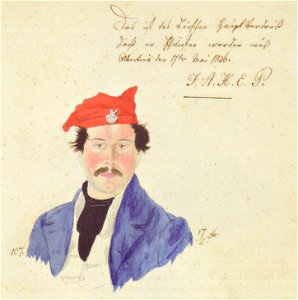 Das ist des Burschen Hauptverdruß
Daß er Philister werden muß
den 17ten Mai 1836.
107.
17/5 36.